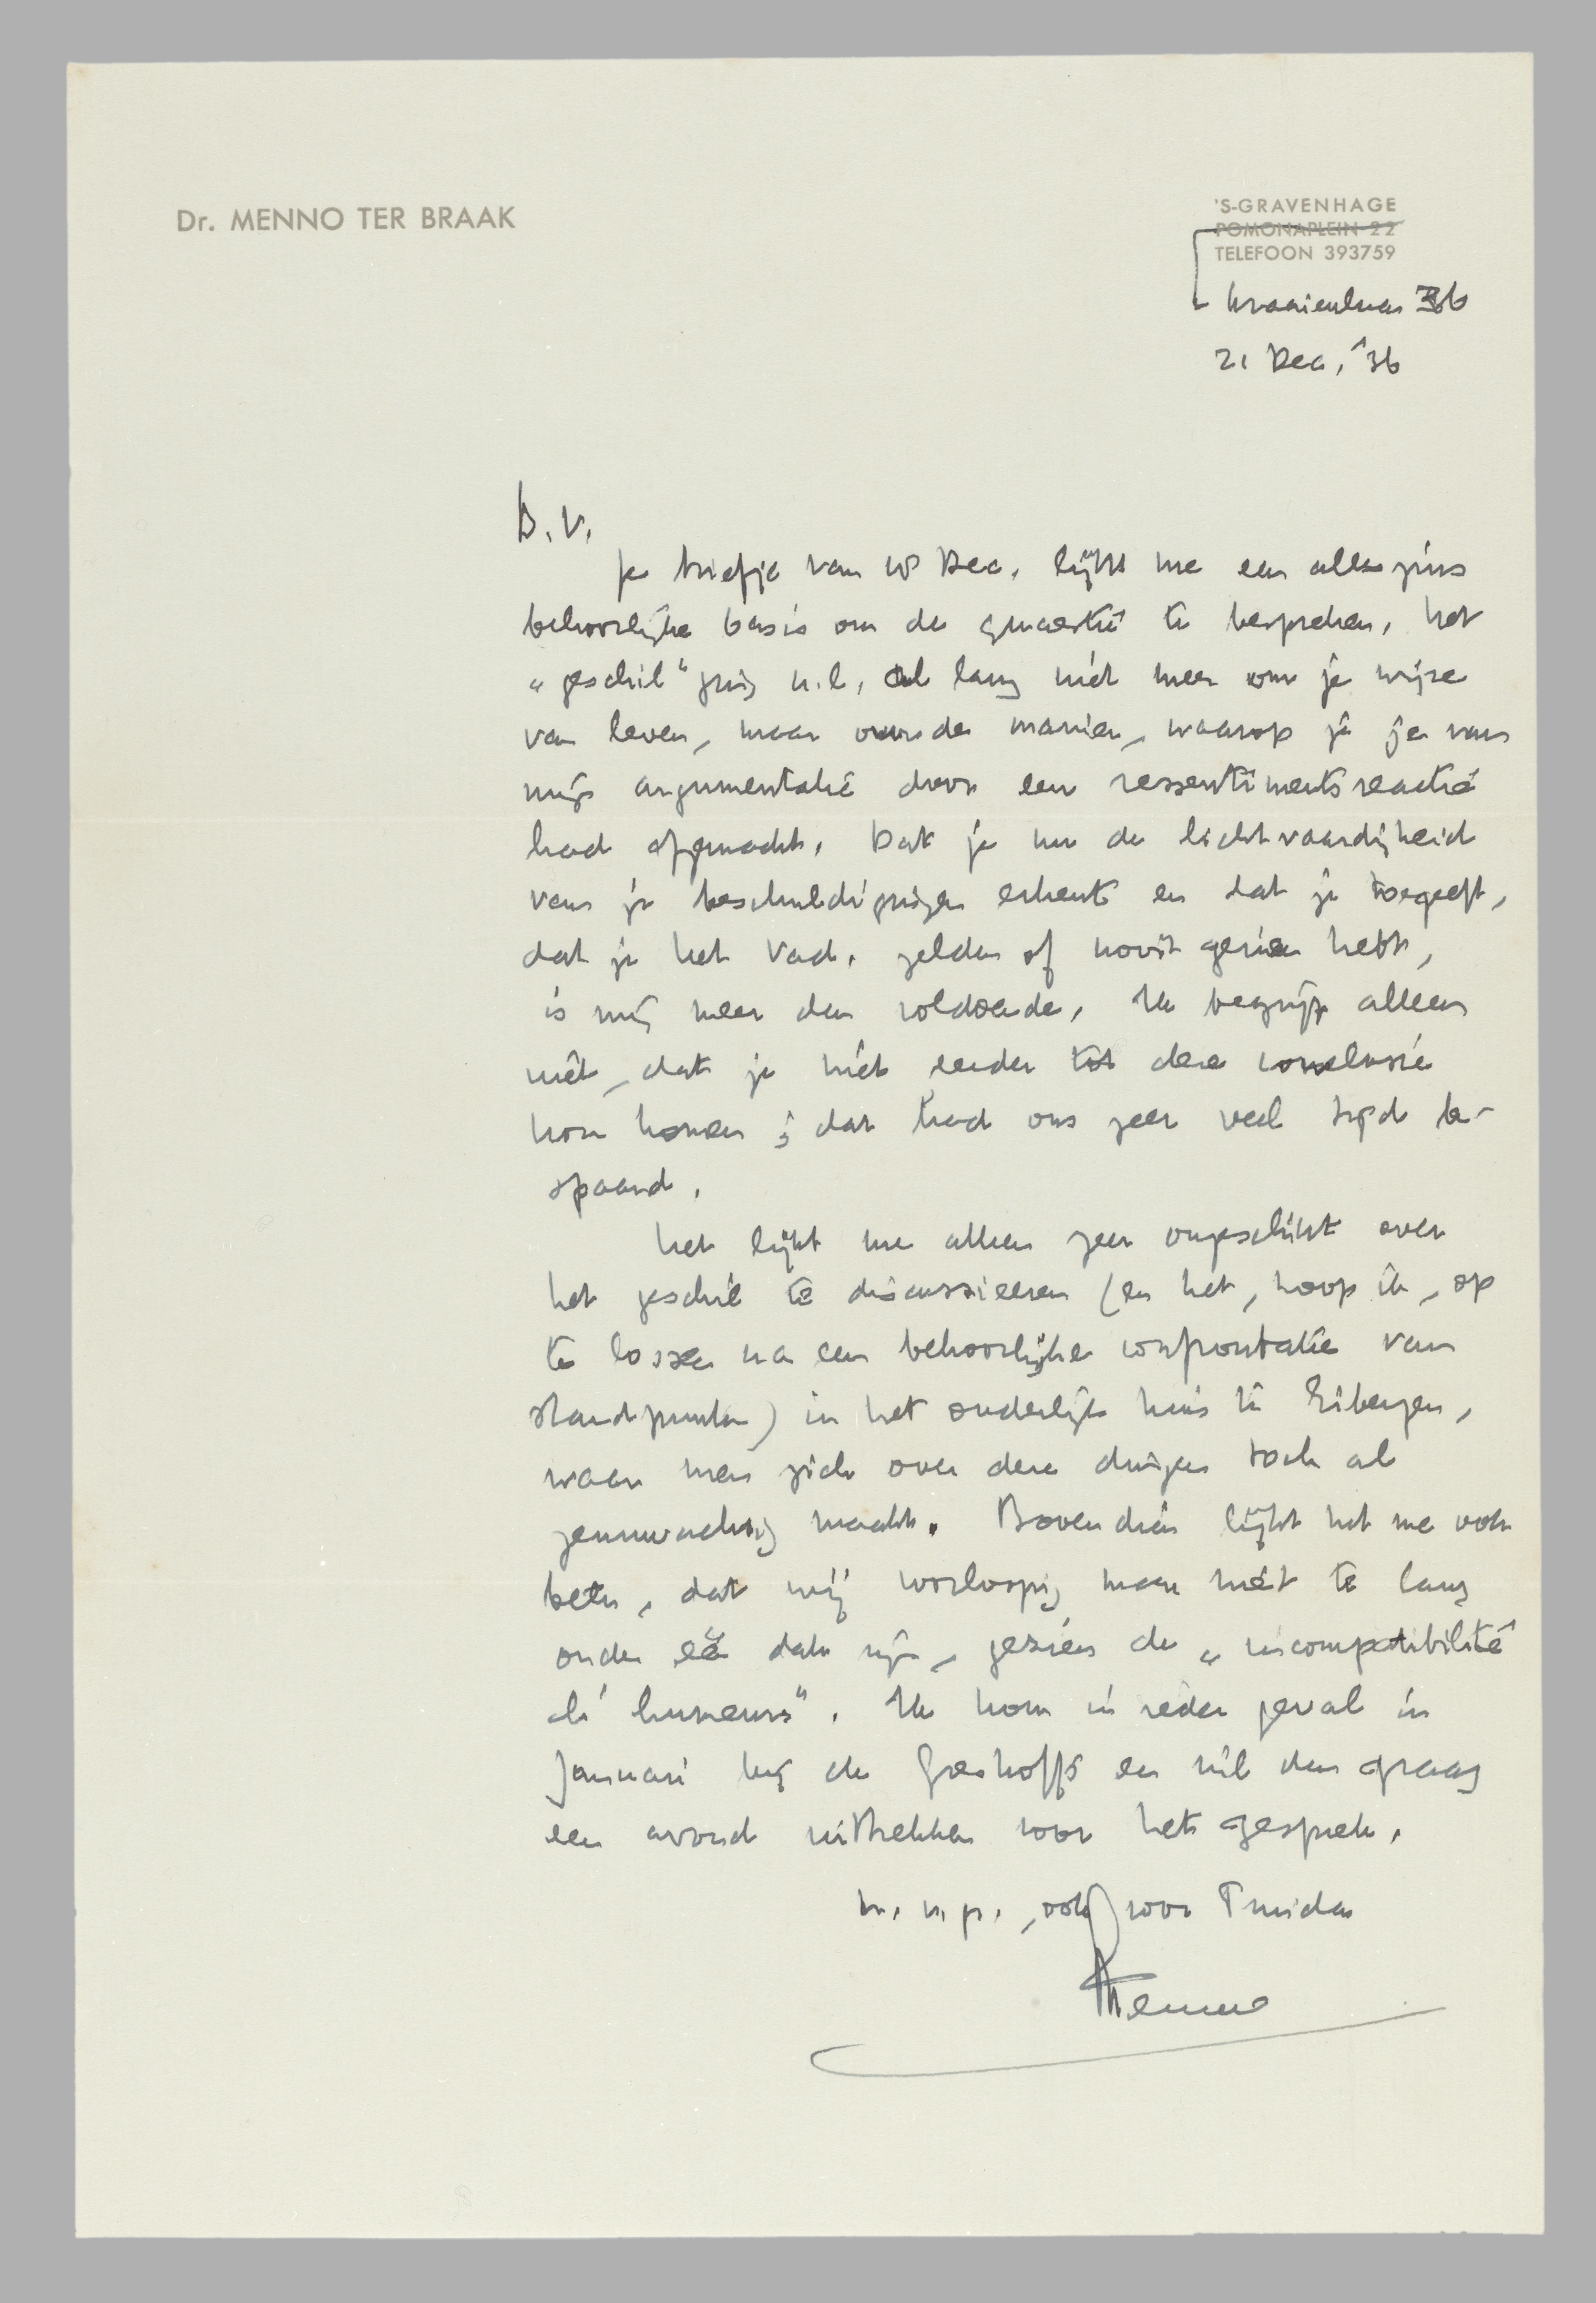 Dr. MENNO TER BRAAK
'S-GRAVENHAGE
POMONAPLEIN 22
TELEFOON 393759
Kraaienlaan 36
21 Dec. '36
B.V.
Je briefje van 18 Dec. lijkt me een alleszins
behoorlijke basis om de quaestie te bespreken. Het
„geschil" ging n.l. al lang niet meer om je wijze
van leven, maar om de manier, waarop je je van
mijn argumentatie door een ressentimentsreactie
had afgemaakt. Dat je nu de lichtvaardigheid
van je beschuldigingen erkent en dat je toegeeft,
dat je het Vad. zelden of nooit gezien hebt,
is mij meer dan voldoende. Ik begrijp alleen
niet, dat je niet eerder tot deze conclusie
kon komen; dat had ons zeer veel tijd be-
spaard.
Het lijkt me alleen zeer ongeschikt over
het geschil te discussieeren (en het, hoop ik, op
te lossen na een behoorlijke confrontatie van
standpunten) in het ouderlijk huis te Eibergen,
waar men zich over deze dingen toch al
zenuwachtig maakt. Bovendien lijkt het me ook
beter, dat wij voorloopig maar niet te lang
onder één dak zijn, gezien de „incompatibilité
d'humeurs". Ik kom in ieder geval in
Januari bij de Greshoffs en wil dan graag
een avond uittrekken voor het gesprek.
m. h. gr., ook voor Truida
Menno